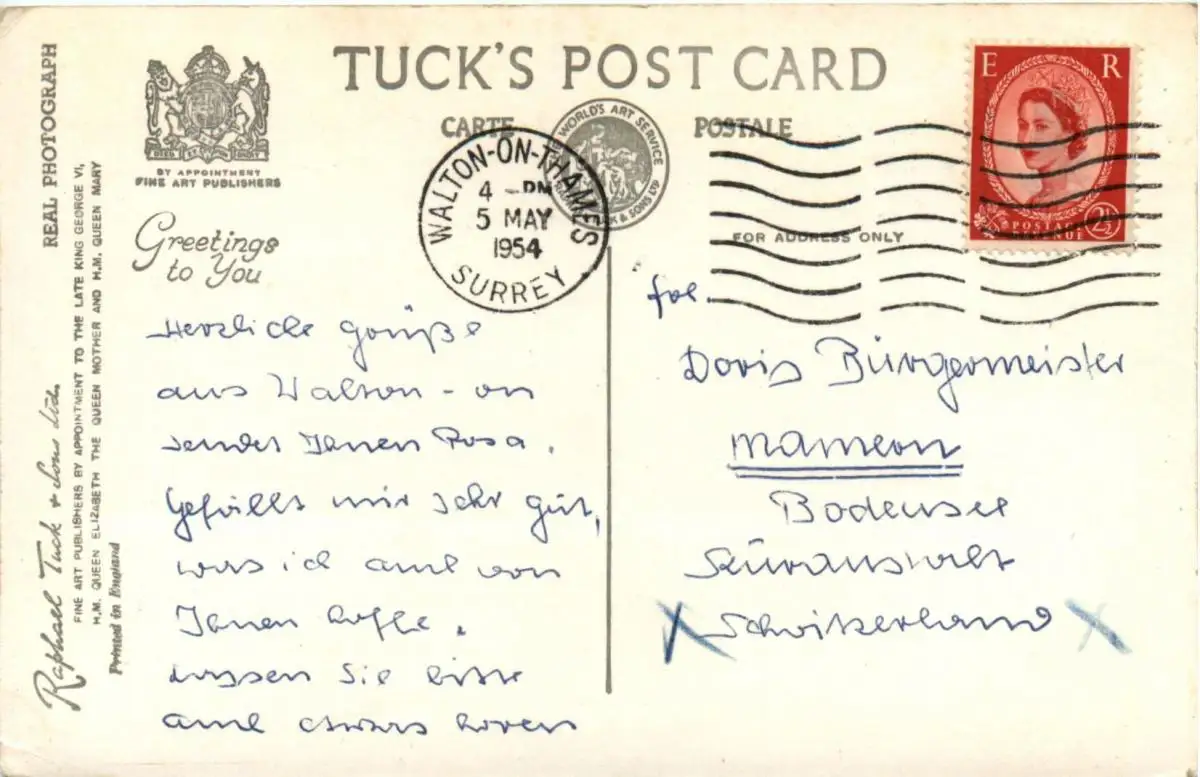 TUCK'S POST CARD
CARTE POSTALE
WORLD'S ART SERVICE
& SONS LTD
BY APPOINTMENT
FINE ART PUBLISHERS
REAL PHOTOGRAPH
Raphael Tuck & Sons Ltd.
FINE ART PUBLISHERS BY APPOINTMENT TO THE LATE KING GEORGE VI,
H.M. QUEEN ELIZABETH THE QUEEN MOTHER AND H.M. QUEEN MARY
Printed in England
WALTON-ON-THAMES
4 - PM
5 MAY
1954
SURREY
E R
POSTAGE
REVENUE
2½
FOR ADDRESS ONLY
Greetings
to You
Herzliche Grüße
aus Walton - on
sendet Ihnen Rosa.
Gefällt mir sehr gut,
was ich auch von
Ihnen hoffe.
Lassen Sie bitte
auch etwas hören
Doris Bürgermeister
Mammern
Bodensee
Kuranstalt
X Schwitzerland X